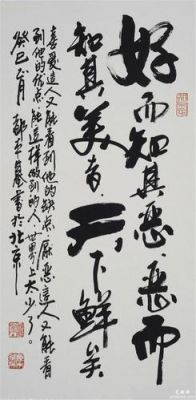 好而知其恶恶而
知其美者天下鲜矣
喜爱这人又能看到他的缺点，厌恶这人又能看
到他的优点，能这样做到的人，世界上太少了。
癸巳 月 书于北京